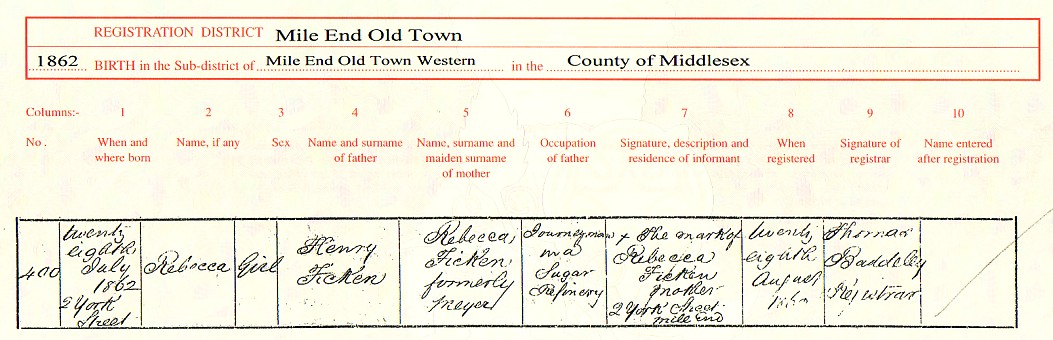 REGISTRATION DISTRICT Mile End Old Town
1862 BIRTH in the Sub-district of Mile End Old Town Western in the County of Middlesex
Columns:- 1 2 3 4 5 6 7 8 9 10
No. When and where born Name, if any Sex Name and surname of father Name, surname and maiden surname of mother Occupation of father Signature, description and residence of informant When registered Signature of registrar Name entered after registration
400
twenty
eighth
July
1862
2 York
Street
Rebecca
Girl
Henry
Ficken
Rebecca
Ficken
formerly
Meyer
Journeyman
in a
Sugar
Refinery
x The mark of
Rebecca
Ficken
Mother
2 York Street
Mile End
twenty
eighth
August
1862
Thomas
Baddeley
Registrar